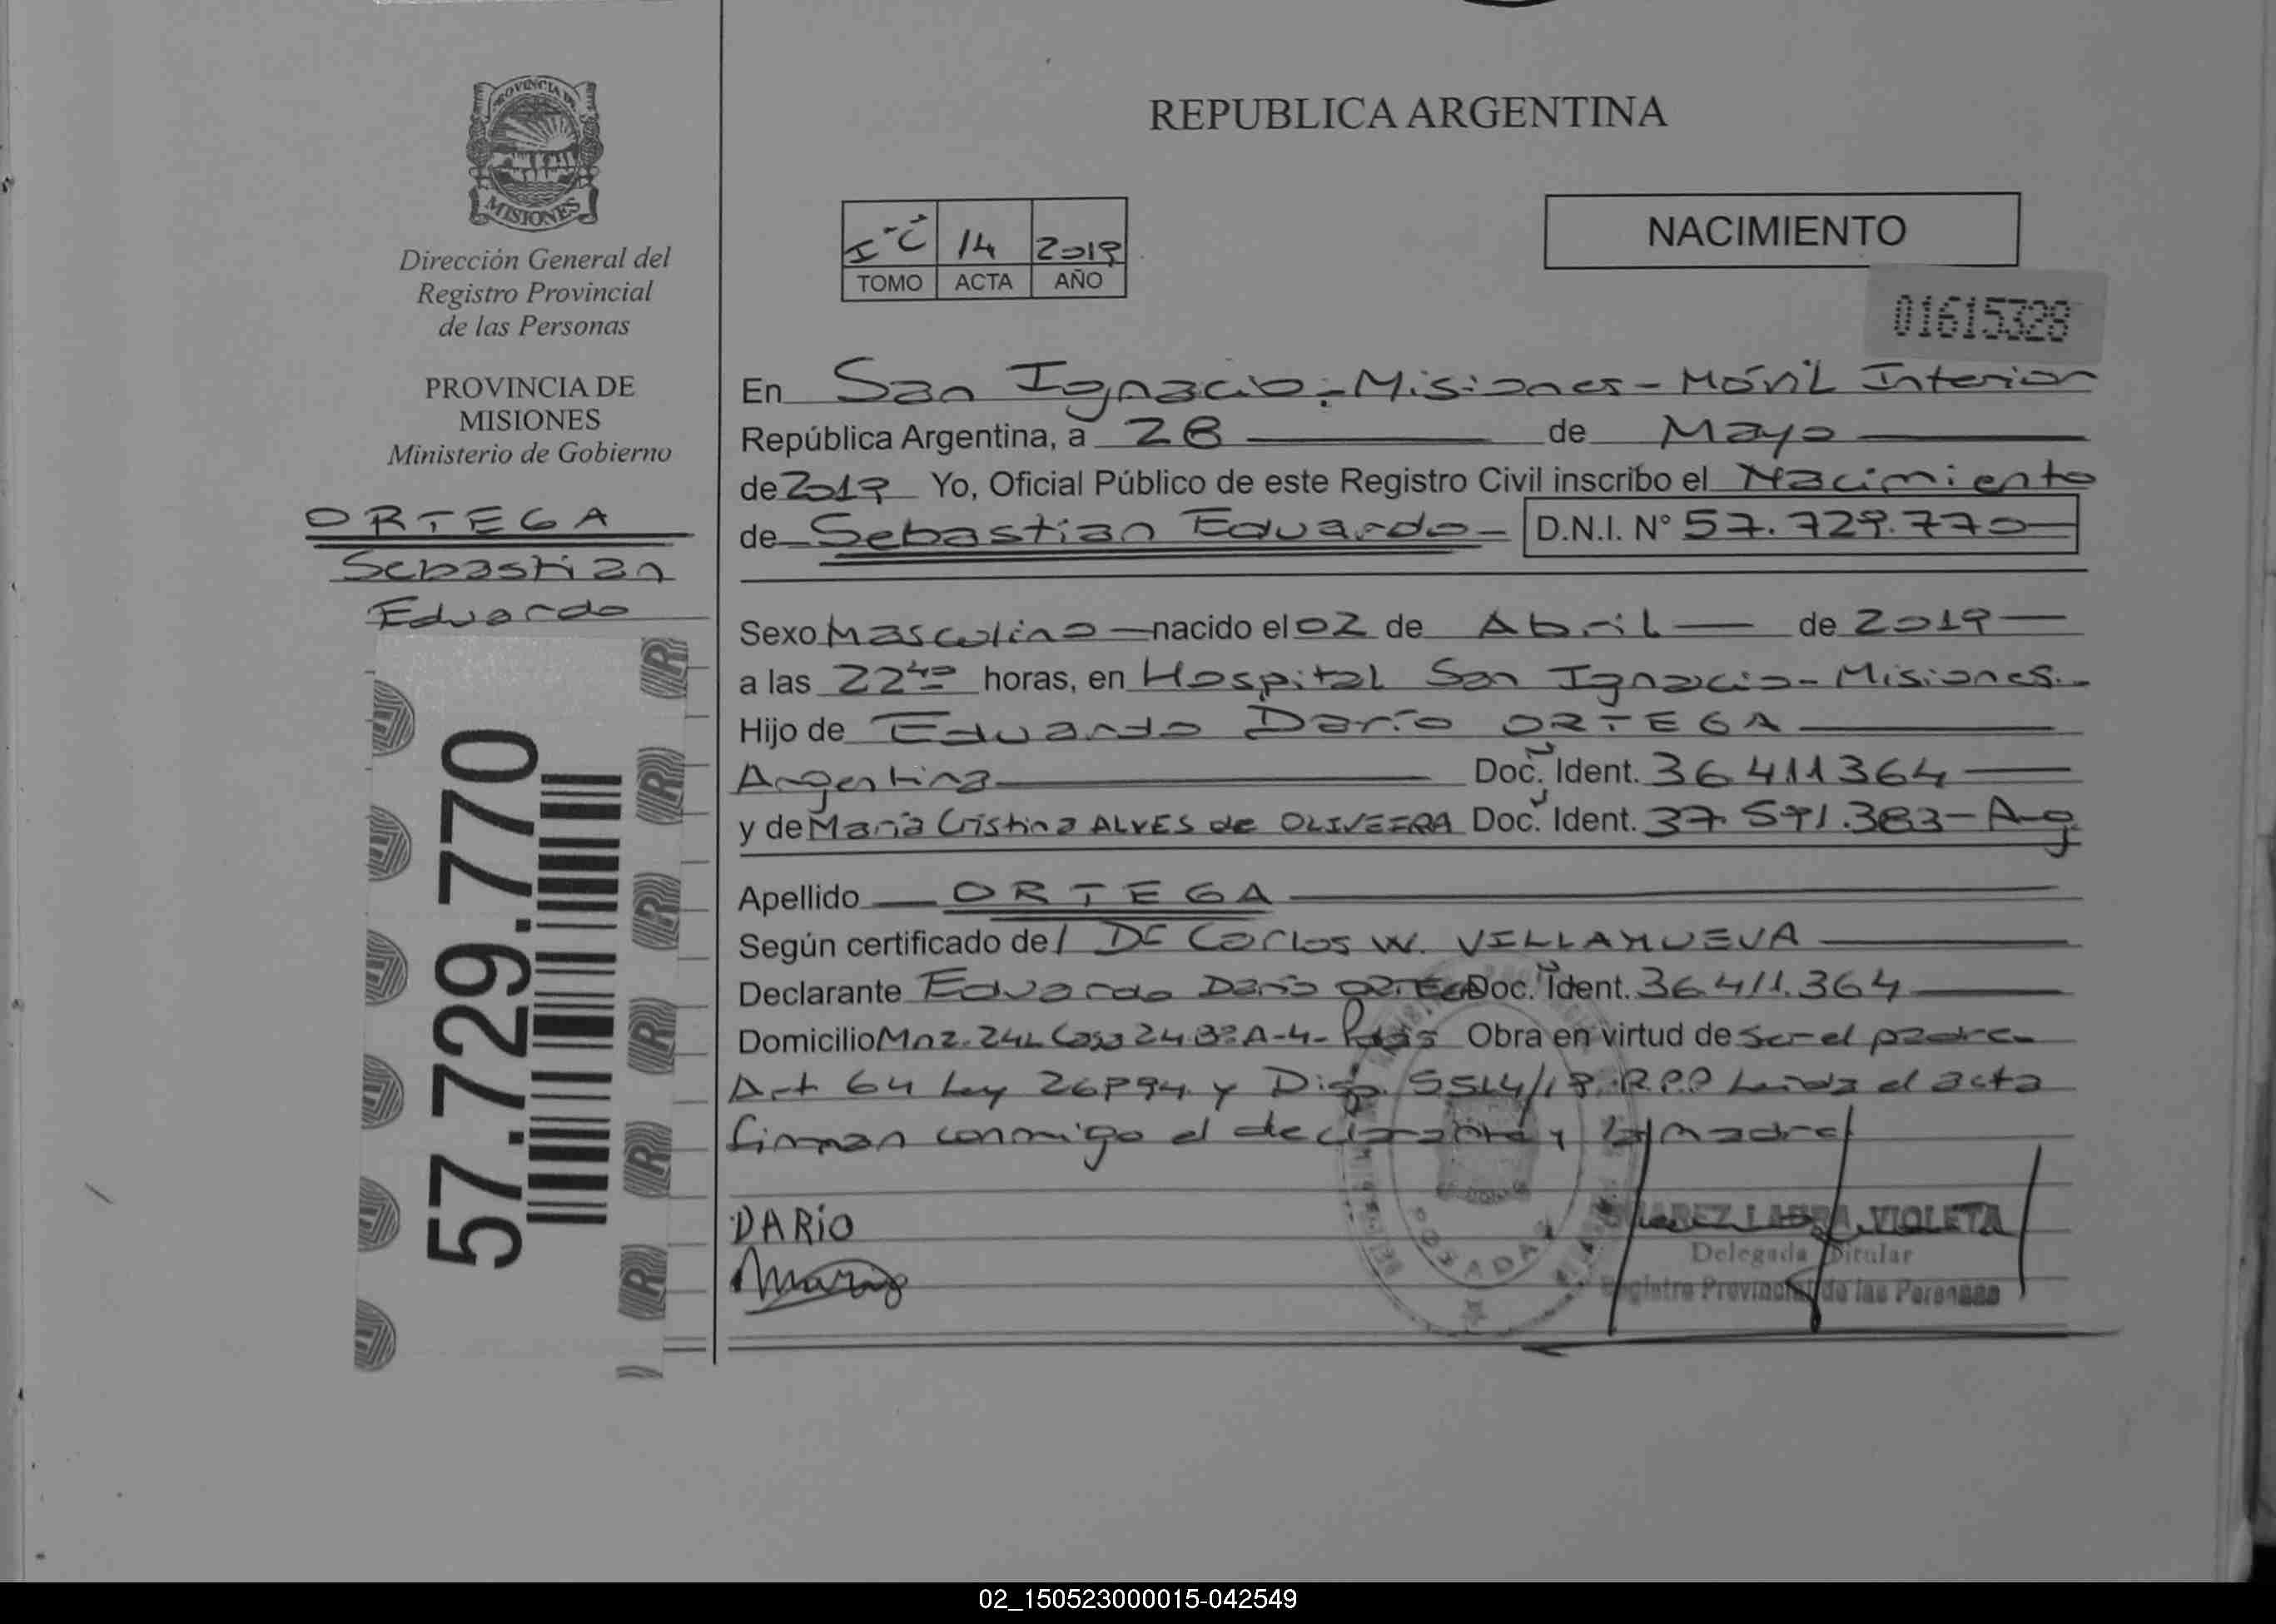 PROVINCIA DE
MISIONES
Dirección General del
Registro Provincial
de las Personas
PROVINCIA DE
MISIONES
Ministerio de Gobierno
ORTEGA
Sebastian
Eduardo
57.729.770
REPUBLICA ARGENTINA
14 2019
TOMO ACTA AÑO
NACIMIENTO
01615328
En San Ignacio - Misiones - Móvil Interior
República Argentina, a 28 de Mayo
de 2019 Yo, Oficial Público de este Registro Civil inscribo el Nacimiento
de Sebastian Eduardo - D.N.I. N° 57.729.770
Sexo Masculino nacido el 02 de Abril de 2019
a las 22 40 horas, en Hospital San Ignacio - Misiones.
Hijo de Eduardo Darío ORTEGA
Argentina Doc. Ident. 36 411 364
y de María Cristina ALVES de OLIVEIRA Doc. Ident. 37.591.383 - Arg
Apellido ORTEGA
Según certificado del Dr Carlos W. VILLANUEVA
Declarante Eduardo Darío ORTEGA Doc. Ident. 36.411.364
Domicilio Mnz. 242 Casa 24 A-4- Obra en virtud de ser el padre.
Art 64 Ley 26994 y Disp. 5514/18 R.P.P Leída el acta
firman conmigo el declarante y la madre
DARIO
Maria
POSADAS
SUAREZ LABRA, VIOLETA
Delegada Titular
Registro Provincial de las Personas
02_150523000015-042549